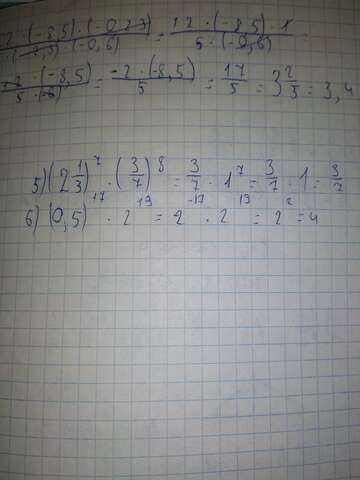 2 · (-8,5) · (-0,23) / · (-2,3) · (-0,6) = 12 · (-8,5) · 1 / 5 · (-0,6) =
-2 · (-8,5) / 5 · (-6) = -2 · (-8,5) / 5 = 17/5 = 3 2/5 = 3,4
5) (2 1/3)^7 · (3/7)^8 = 3/7 · 1^7 = 3/7 · 1 = 3/7
6) (0,5)^17 · 2^19 = 2^-17 · 2^19 = 2^2 = 4